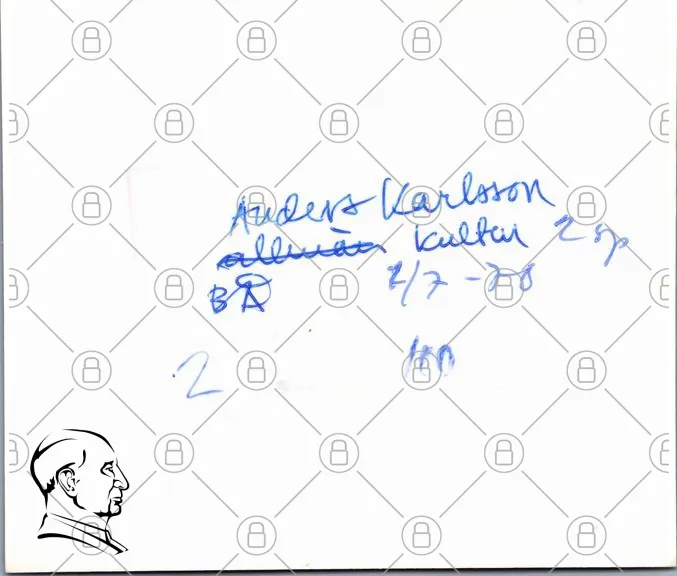 Anders Karlsson
allmän kultur 2 sp
BA 2/7 -78
2